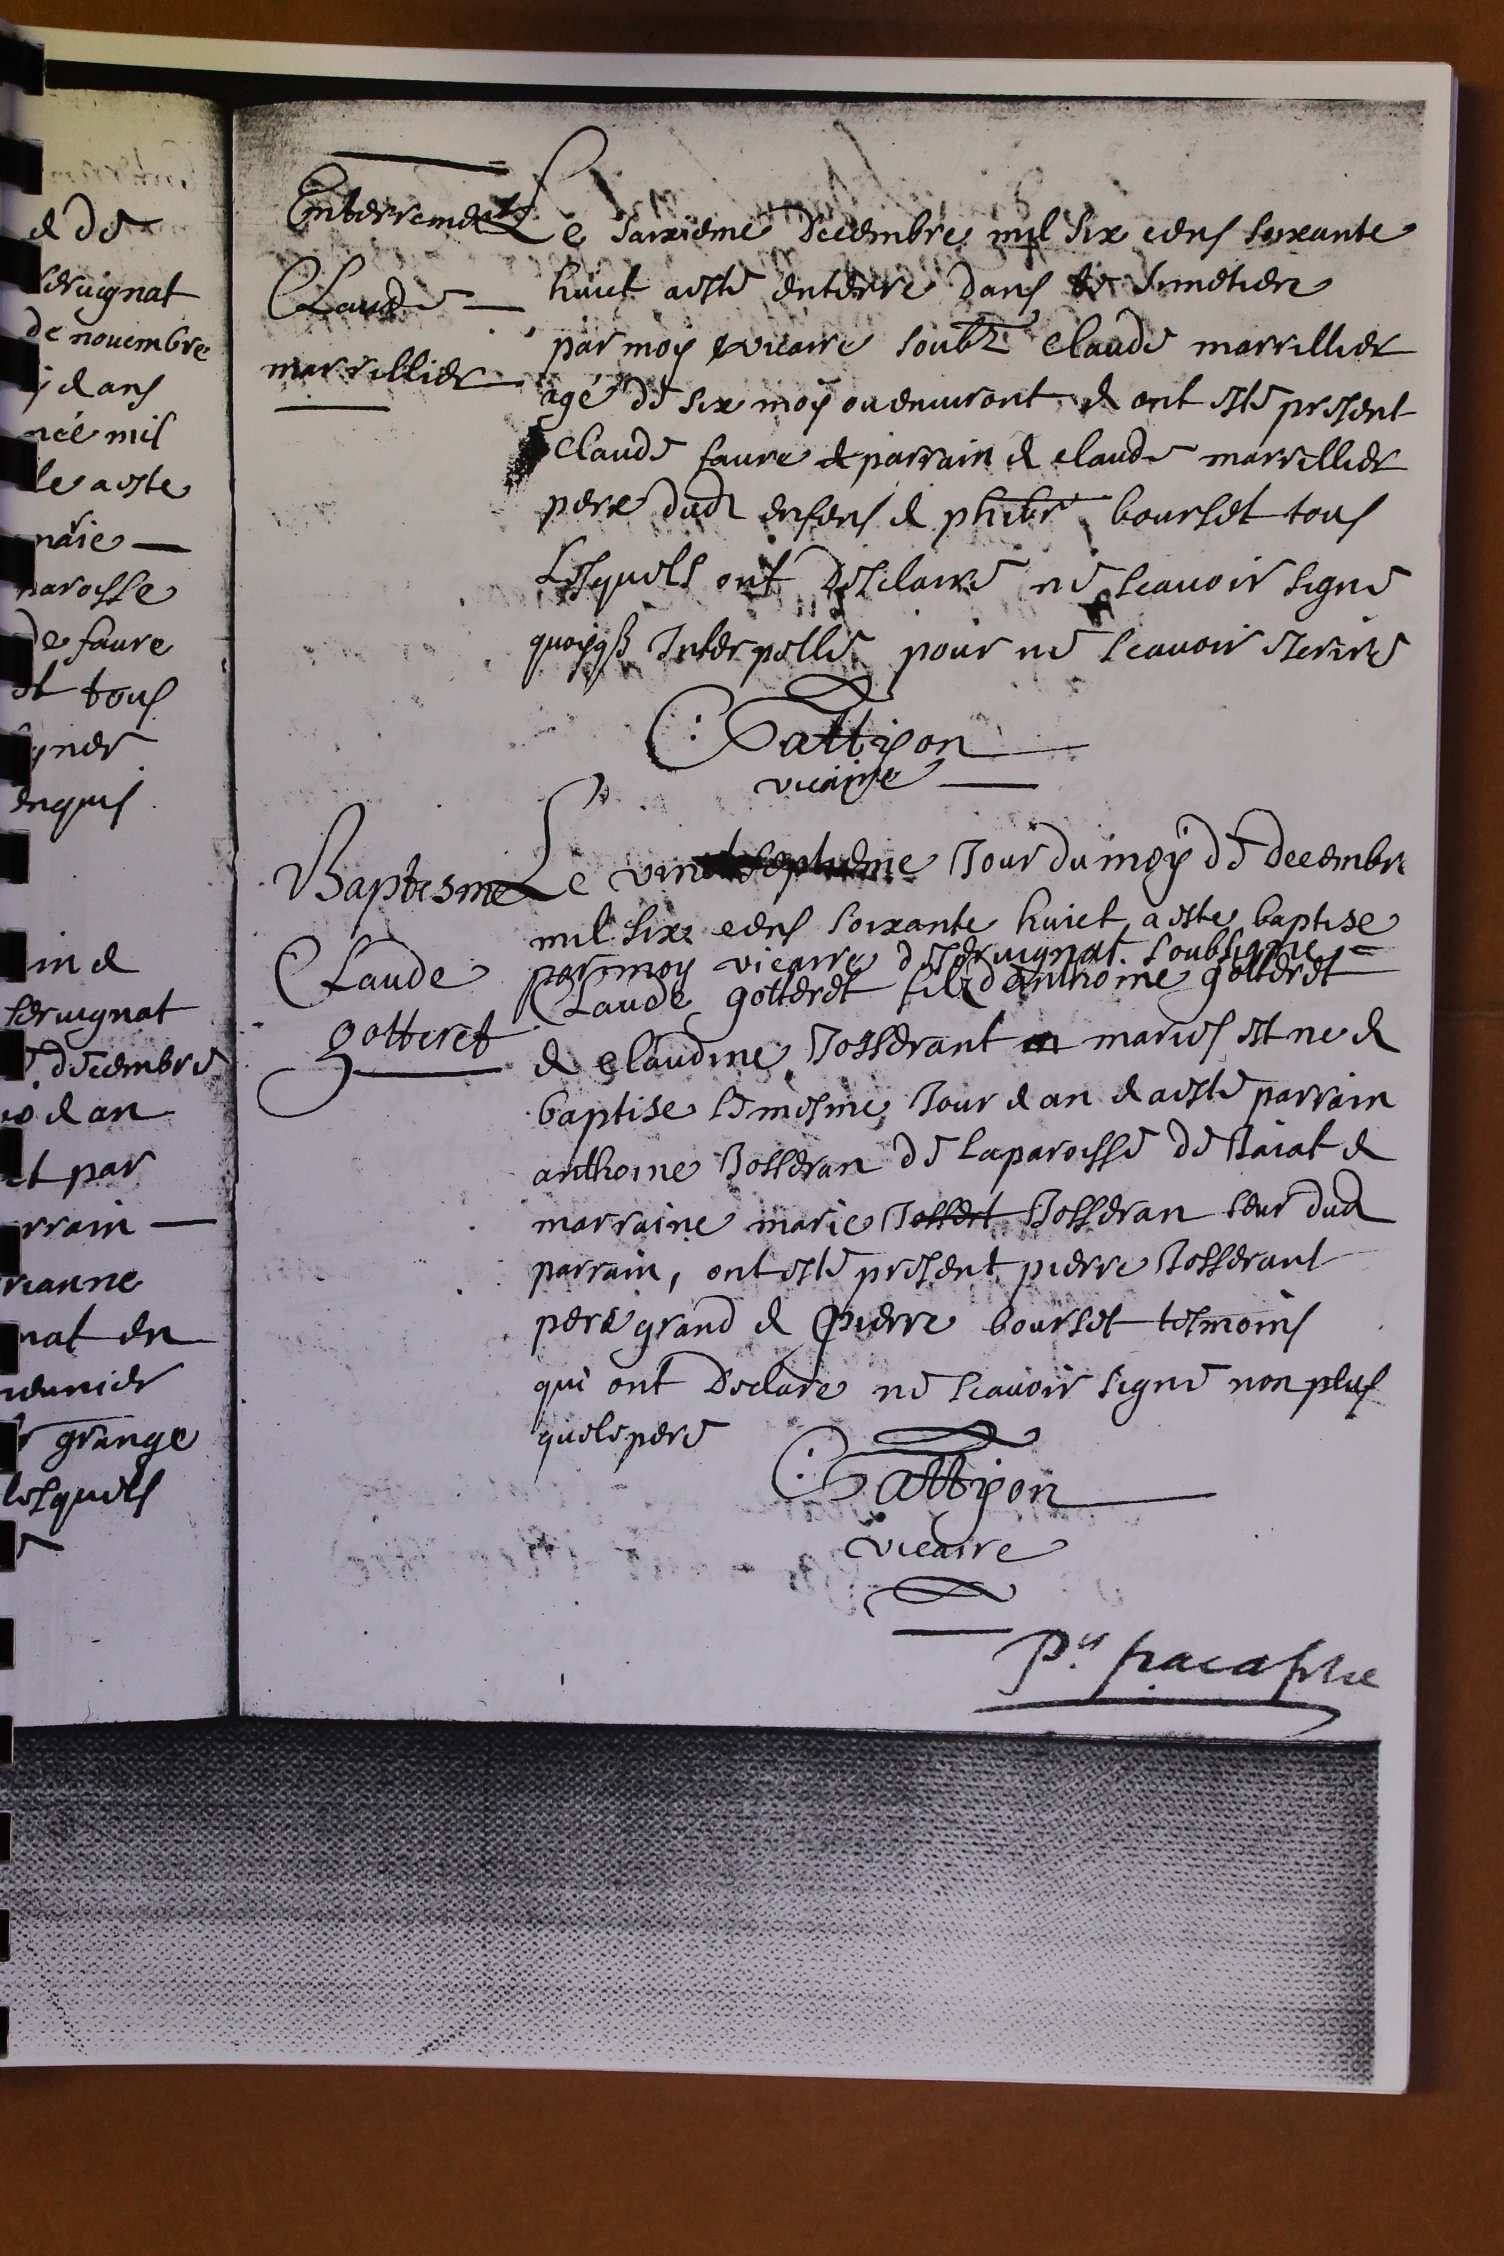 e de
seruignat
de nouembre
dans
mil
le a este
marie
parosse
de faure
et tous
signer
enquis
in e
seruignat
decembre
e an
et par
rrain
rianne
nat en
meunier
grange
lesquels
Enterrement
Claude
marvillier
Le saizieme decembre mil six cens soixante
huict a esté enterré dans le simetiere
par moy vicaire soubz claude marvillier
agé de six moy ou enuiront & ont esté present
claude faure parrain & claude marvillier
pere dud enfens & phibr bourset tous
Lesquels ont desclairé ne scauoir signé
quoyq Interpellé pour ne scauoir escrire
C: Gattyon
vicaire
Baptesme
Claude
gotteret
Le vint septieme Jour du moy de decembre
mil six cens soixante huict a este baptise
par moy vicaire de seruignat soubsigne
Claude gotteret filz d'anthoine gotteret
& claudine Josserant mariés est ne &
baptise le mesme Jour & an & a esté parrain
anthoine Josseran de la paroisse de Jaiat &
marraine marie Jossert Josseran seur dud
parrain, ont esté present pierre Josserant
pere grand & pierre bourset tesmoins
qui ont declare ne scauoir signé non plus
que le pere
C: Gattyon
vicaire